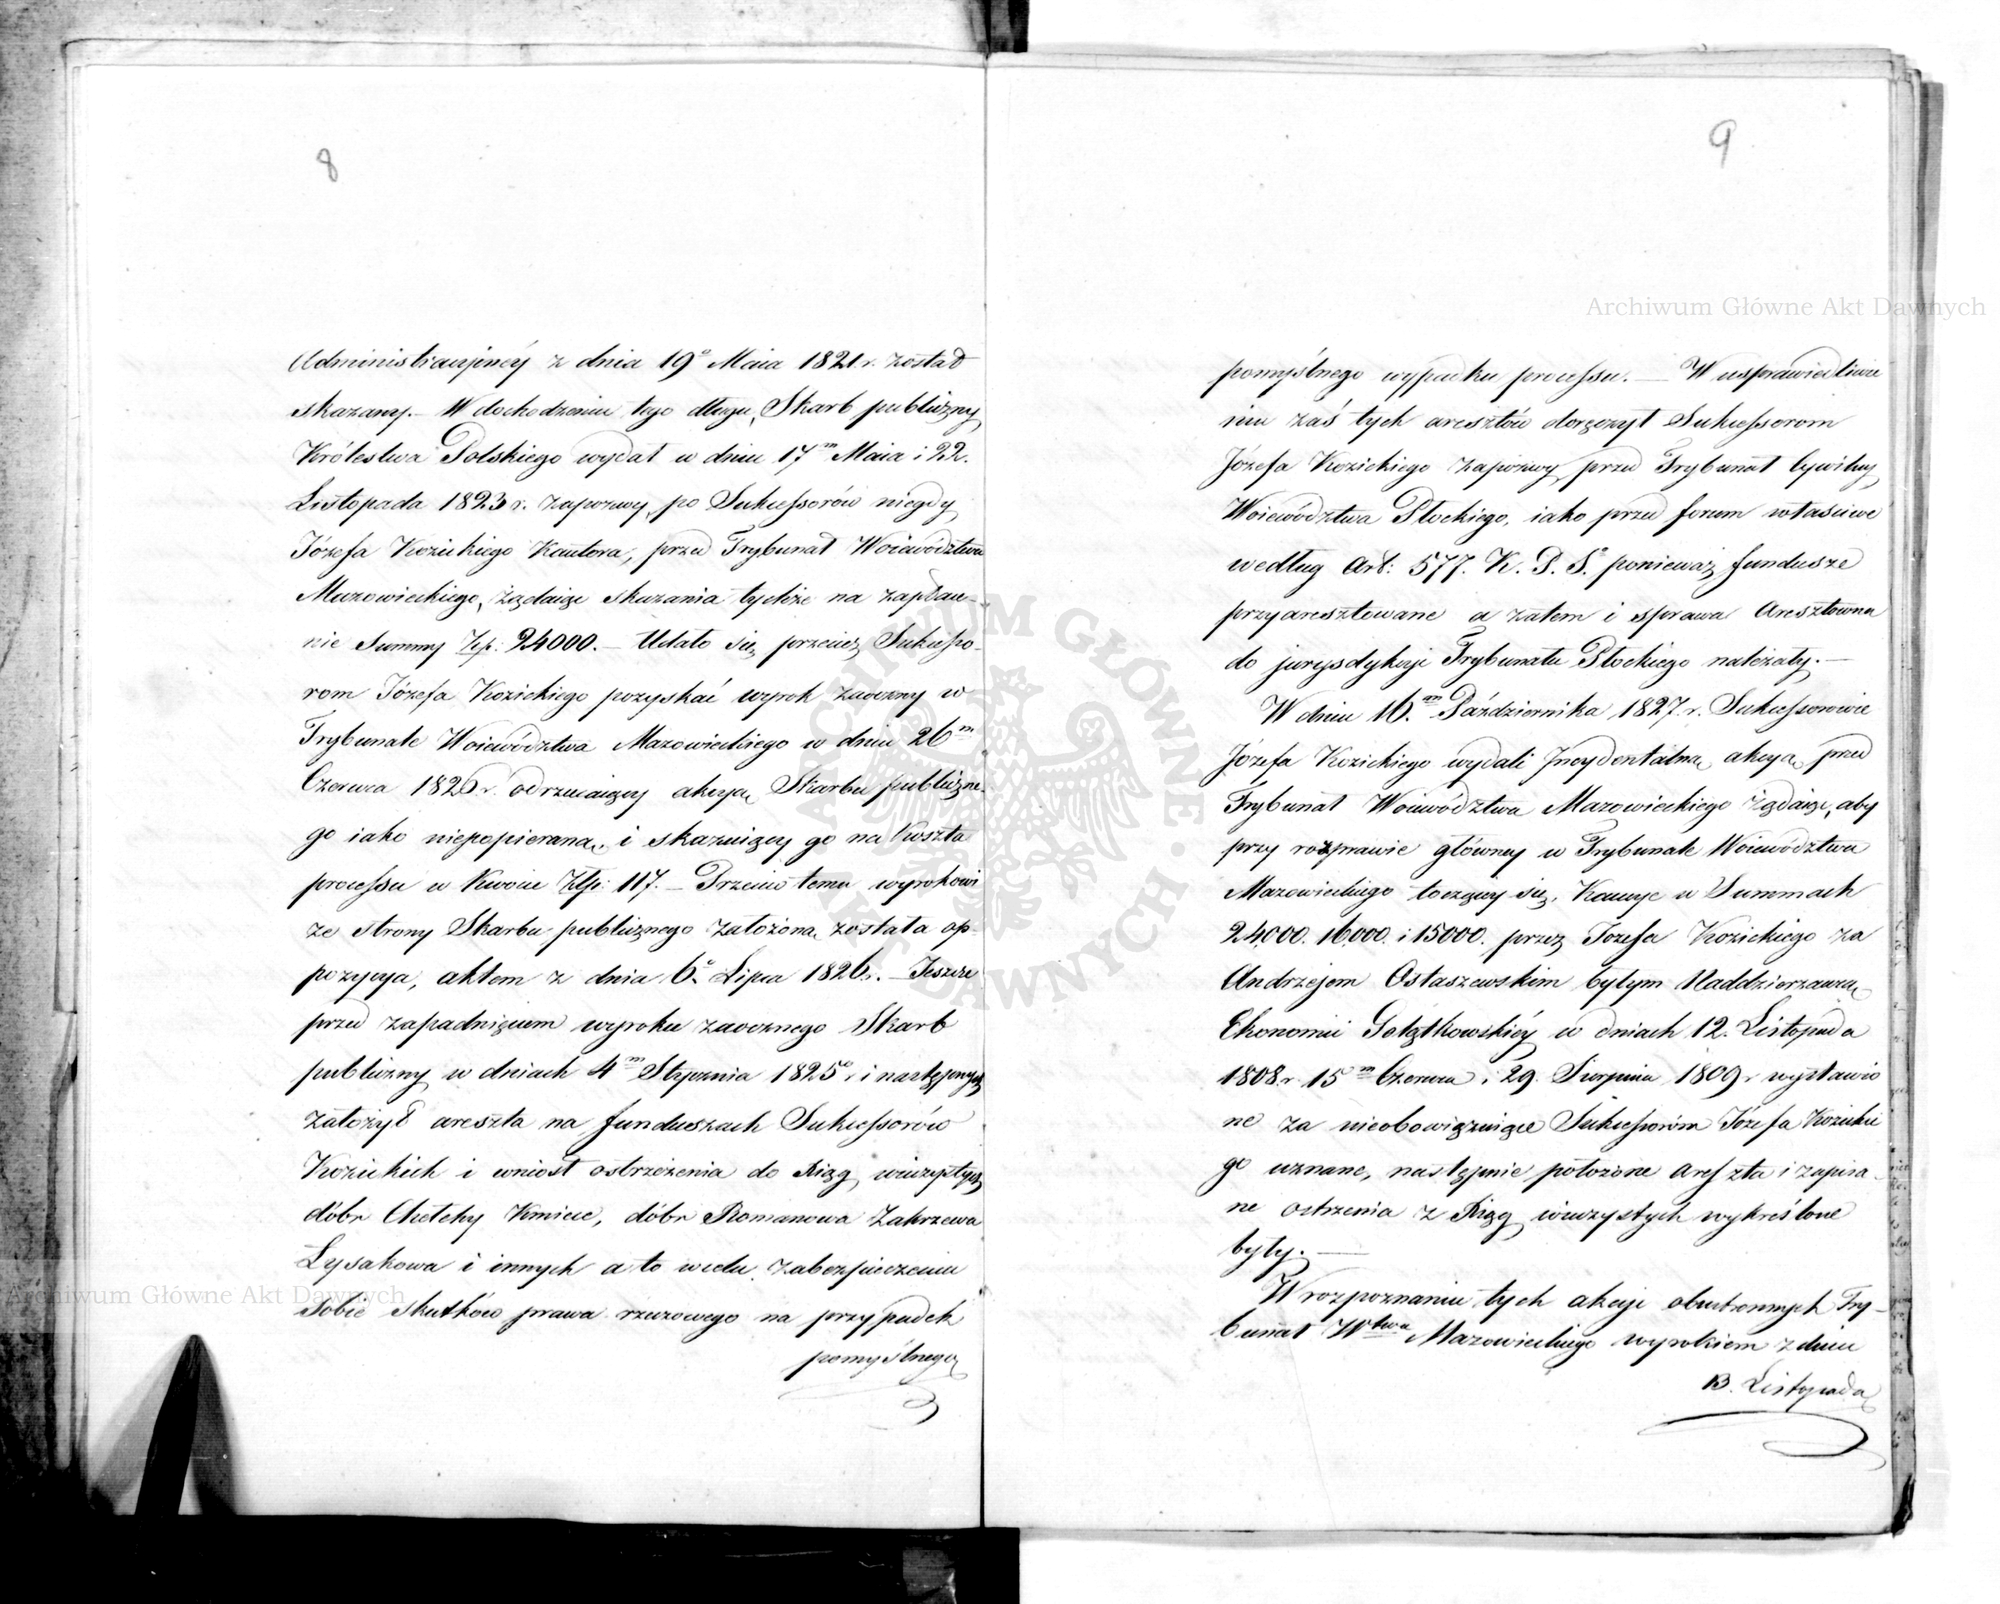 8
Administracyinéy z dnia 19º Maia 1821. r. został
skazany. — W dochodzeniu tego długu, Skarb publiczny
Królestwa Polskiego wydał w dniu 17m Maia i 22.
Listopada 1823 r. zapozwy, po Sukcessorów niegdy
Józefa Kozickiego Kautora, przed Trybunał Woiewództwa
Mazowieckiego, żądaiąc skazania tychże na zapłace-
nie Summy Złp: 24000. — Udało się przecież Sukcesso-
rom Józefa Kozickiego pozyskać wyrok zaoczny w
Trybunale Woiewództwa Mazowieckiego w dniu 26m
Czerwca 1826 r. odrzucaiący akcyą Skarbu publiczne-
go iako niepopieraną, i skazuiący go na Koszta
processu w Kwocie Złp: 117. — Przeciw temu wyrokowi
ze strony Skarbu publicznego założona została op-
pozycya, aktem z dnia 6º Lipca 1826 r. — Jeszcze
przed zapadnięciem wyroku zaocznego Skarb
publiczny w dniach 4m Stycznia 1825º r i następnych
założył areszta na funduszach Sukcessorów
Kozickich i wniósł ostrzeżenia do Ksiąg wieczystych
dóbr Chełchy Kmiece, dóbr Romanowa Zakrzewa
Łysakowa i innych a to w celu zabezpieczenia
sobie skutków prawa rzeczowego na przypadek
pomyślnego
9
pomyślnego wypadku processu. — W usprawiedliwie
niu zaś tych aresztów doręczył Sukcessorom
Józefa Kozickiego zapozwy przed Trybunał Cywilny
Woiewództwa Płockiego, iako przed forum właściwe
według Art: 577. K. P. S. ponieważ fundusze
przyaresztowane a zatem i sprawa Aresztowna
do jurysdykcyi Trybunału Płockiego należały. —
W dniu 16.m Października 1827. r. Sukcessorowie
Józefa Kozickiego wydali Incydentalną akcyą przed
Trybunał Woiewództwa Mazowieckiego żądaiąc, aby
przy rozprawie główney w Trybunale Woiewództwa
Mazowieckiego toczącey się, Kaucye w Summach
24,000. 16,000. i 15000. przez Józefa Kozickiego za
Andrzejem Ostaszewskim byłym Naddzierżawcą
Ekonomii Gołątkowskiéy w dniach 12. Listopada
1808. r. 15m Czerwca i 29. Sierpnia 1809 r wystawio
ne za nieobowiązuiące Sukcessorów Józefa Kozickie
go uznane, następnie położone Areszta i zapisa-
ne ostrzenia z Ksiąg wieczystych wykreślone
były. —
W rozpoznaniu tych akcyi obustronnych Try-
bunał Wtwa Mazowieckiego wyrokiem z dnia
13. Listopada
Archiwum Główne Akt Dawnych
Archiwum Główne Akt Dawnych
ARCHIWUM GŁÓWNE AKT DAWNYCH